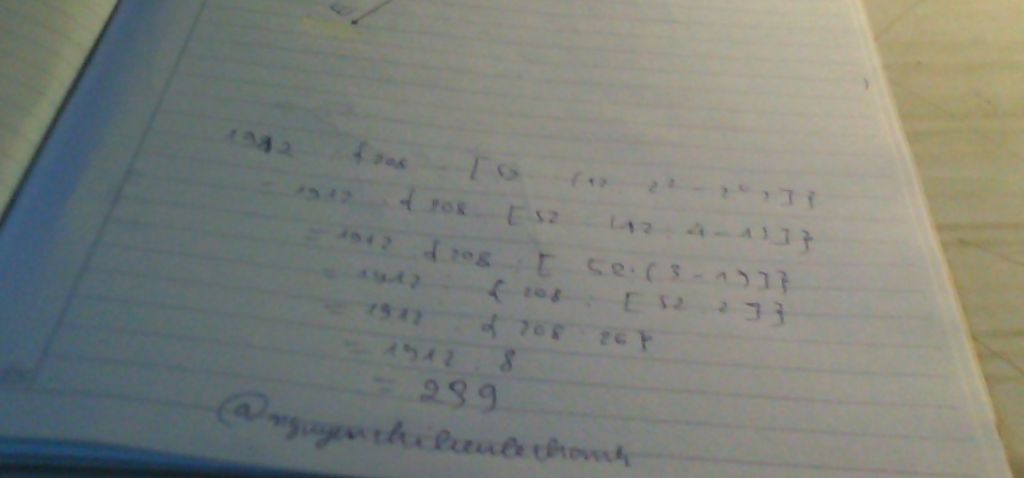 1912 : {208 : [52 : (12 : 2² - 2⁰)]}
= 1912 : {208 : [52 : (12 : 4 - 1)]}
= 1912 : {208 : [52 : (3 - 1)]}
= 1912 : {208 : [52 : 2]}
= 1912 : {208 : 26}
= 1912 : 8
= 239